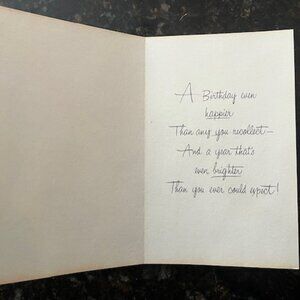 A Birthday even
happier
Than any you recollect—
And a year that's
even brighter
Than you ever could expect!